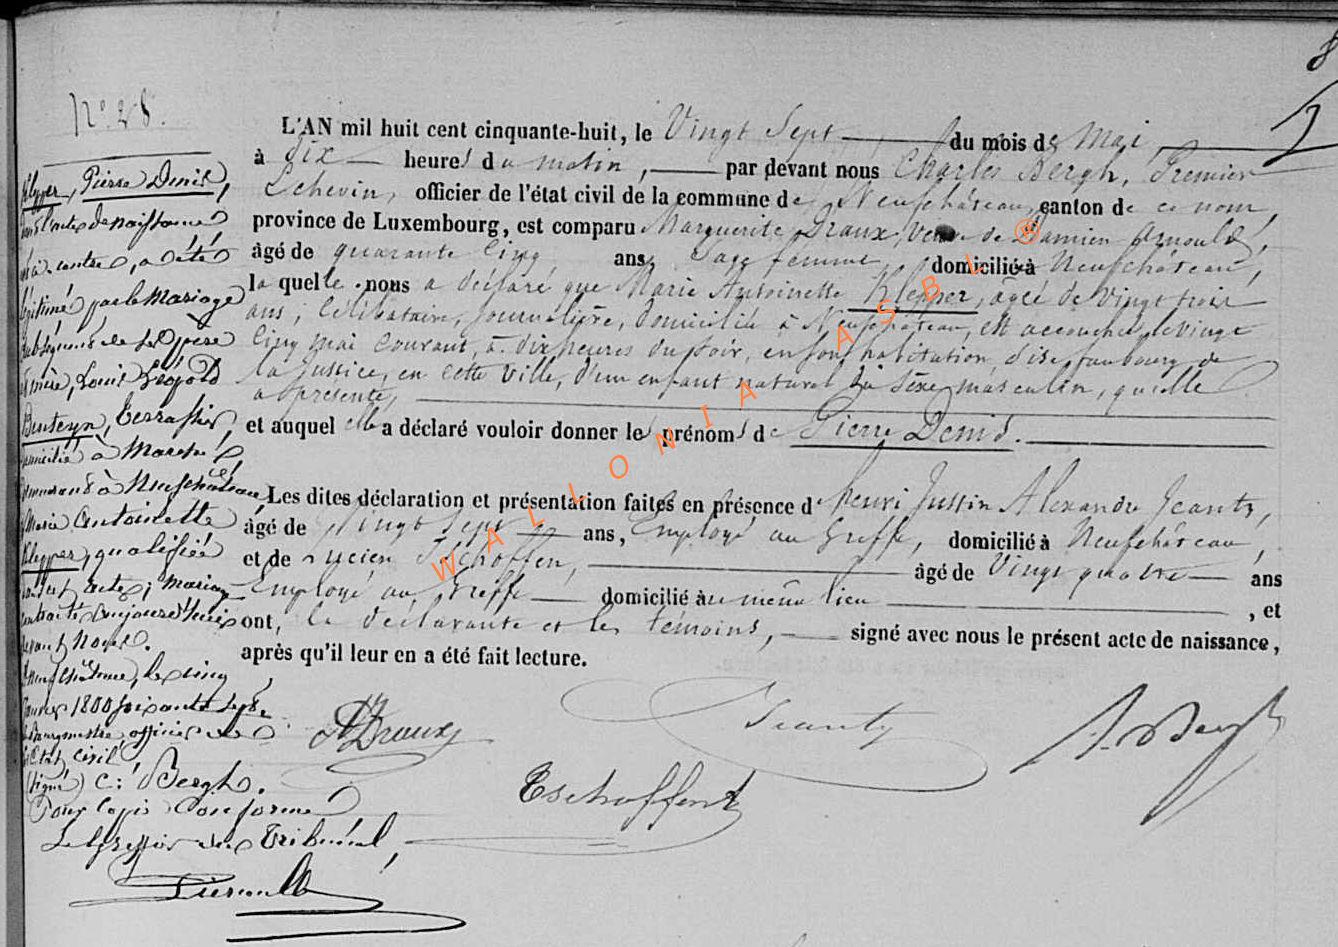 N° 28.
Klepper, Pierre Denis,
dont l'acte de naissance
est ci-contre, a été
légitimé par le mariage
subséquent de ses père
et mère, Louis Léopold
Benteyn, terrassier,
domicilié à
demeurant à Neufchâteau,
et Marie Antoinette
Klepper, qualifiée
audit acte; mariage
contracté aujourd'hui
devant nous.
Neufchâteau, le cinq
Janvier 1800 soixante sept.
Le Bourgmestre officier de
l'Etat civil
(signé) C: Bergh.
Pour copie conforme
Le Greffier du Tribunal,
L'AN mil huit cent cinquante-huit, le Vingt Sept du mois de Mai,
à dix heures du matin, par devant nous Charles Bergh, Premier
Echevin, officier de l'état civil de la commune de Neufchâteau, canton de ce nom,
province de Luxembourg, est comparu Marguerite Draux, Veuve de Damien Arnould,
âgé de quarante cinq ans, Sage femme, domicilié à Neufchâteau,
la quelle nous a déclaré que Marie Antoinette Klepper, âgée de vingt trois
ans, Célibataire, Journalière, domiciliée à Neufchâteau, est accouchée le vingt
cinq mai courant, à dix heures du soir, en son habitation, sise faubourg de
la justice, en cette ville, d'un enfant naturel du sexe masculin, qu'elle
a présenté,
et auquel elle a déclaré vouloir donner les prénoms de Pierre Denis.
Les dites déclaration et présentation faites en présence d'henri Justin Alexandre Jeanty,
âgé de Vingt sept ans, Employé au Greffe, domicilié à Neufchâteau,
et de Lucien Eschoffen, âgé de Vingt quatre ans
Employé au Greffe domicilié au même lieu, et
ont, la déclarante et les témoins, signé avec nous le présent acte de naissance,
après qu'il leur en a été fait lecture.
Draux
Jeanty
Bergh
Eschoffen
WALLONIA ASBL ®